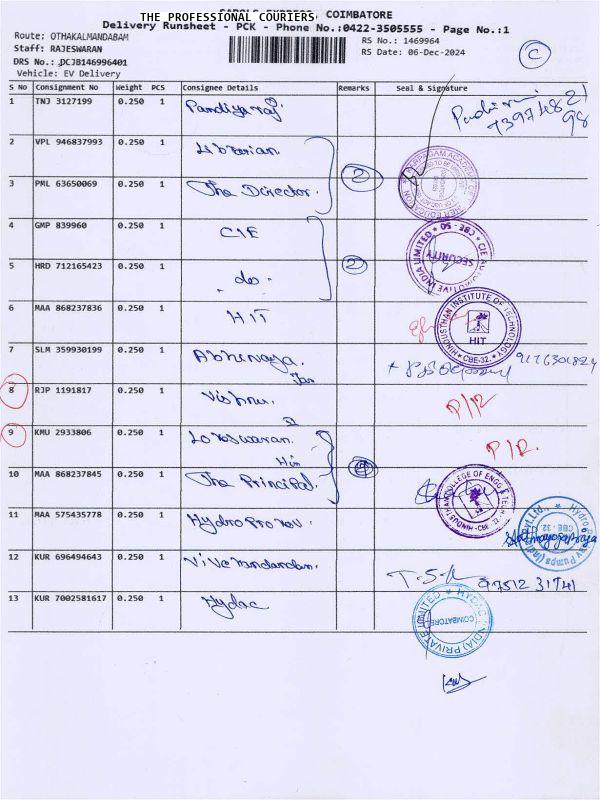 THE PROFESSIONAL COURIERS, COIMBATORE
Delivery Runsheet - PCK - Phone No.:0422-3505555 - Page No.:1
Route: OTHAKALMANDABAM
Staff: RAJESWARAN
DRS No.: DCJB146996401
Vehicle: EV Delivery
RS No.: 1469964
RS Date: 06-Dec-2024
C
S No Consignment No Weight PCS Consignee Details Remarks Seal & Signature
1 TNJ 3127199 0.250 1 Pandiyaraj
2 VPL 946837993 0.250 1 Librarian
3 PML 63650069 0.250 1 The Director 2
4 GMP 839960 0.250 1 CIE
CIE AUTOMOTIVE INDIA LIMITED CBE - 50 SECURITY
5 HRD 712165423 0.250 1 do 2
6 MAA 868237836 0.250 1 HIT
HINDUSTHAN INSTITUTE OF TECHNOLOGY HIT CBE-32
7 SLM 359930199 0.250 1 Abhinaya
8 RJP 1191817 0.250 1 Vishnu P/R
9 KMU 2933806 0.250 1 P/R.
10 MAA 868237845 0.250 1 The Principal
HINDUSTHAN COLLEGE OF ENGG & TECH CBE - 32
11 MAA 575435778 0.250 1
Pumps (India) Pvt. Ltd. CBE - 32
12 KUR 696494643 0.250 1 97512 31741
13 KUR 7002581617 0.250 1 Hydac
HYDAC (INDIA) PRIVATE LIMITED COIMBATORE